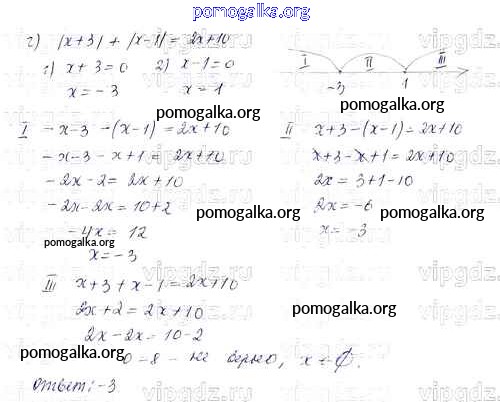 pomogalka.org
г) |x+3| + |x-1| = 2x+10
1) x+3=0 2) x-1=0
x=-3 x=1
I II III
-3 1
pomogalka.org
I -x-3 -(x-1) = 2x+10
-x-3-x+1 = 2x+10
-2x-2 = 2x+10
-2x-2x = 10+2
-4x = 12
x = -3
pomogalka.org
pomogalka.org
II x+3-(x-1) = 2x+10
x+3-x+1 = 2x+10
2x = 3+1-10
2x = -6
x = -3
pomogalka.org
pomogalka.org
III x+3+x-1 = 2x+10
2x+2 = 2x+10
2x-2x = 10-2
0=8 - не верно, x ∈ ∅.
pomogalka.org
pomogalka.org
Ответ: -3
vipgdz.ru